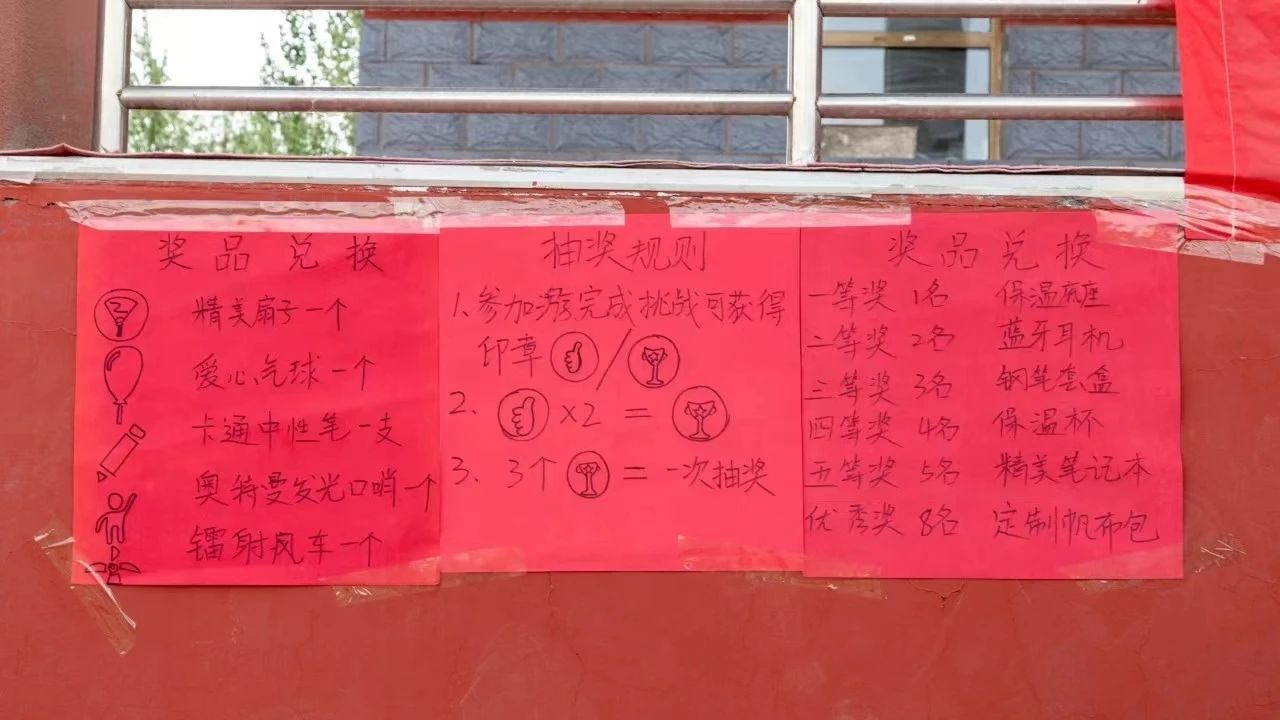 奖品兑换
精美扇子一个
爱心气球一个
卡通中性笔一支
奥特曼发光口哨一个
镭射风车一个
抽奖规则
1.参加游完成挑战可获得
印章 /
2. ×2 =
3. 3个 = 一次抽奖
奖品兑换
一等奖 1名 保温底座
二等奖 2名 蓝牙耳机
三等奖 3名 钢笔套盒
四等奖 4名 保温杯
五等奖 5名 精美笔记本
优秀奖 8名 定制帆布包